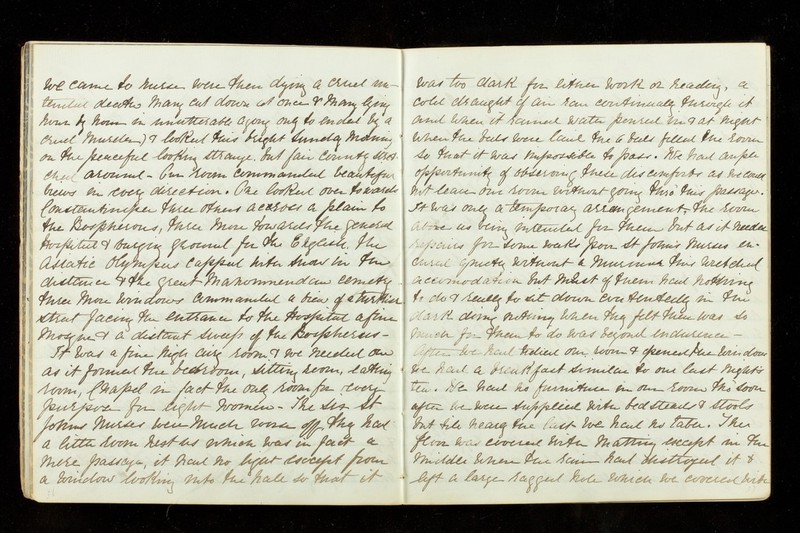 we came to nurse were then dying a cruel un-
tended death many cut down at once & many lying
hour by hour in unutterable agony only to ended by a
cruel murder) & looked this bright Sunday Morning
on the peaceful looking strange, but fair country stret
ched around - Our room commanded beautiful
views in every direction. One looked over towards
Constantinople three others across a plain to
the Bospherous, three more towards the general
Hospital & burying ground for the English. The
Asiatic Olympus capped with snow in the
distance & the great Mahommendan cemetry
three more windows commanded a view of a turkish
street facing the entrance to the Hospital a fine
Mosque & a distant sweep of the Bospherus -
It was a fine high airy room & we needed one
as it formed the bedroom, sitting room, eating
room, Chapel in fact the only room for every
purpose for eight women - The six St
Johns Nurses were much worse off, they had
a little room next us which was in fact a
mere passage, it had no light except from
a window looking into the hall so that it
was too dark for either work or reading, a
cold draught of air ran continually through it
and when it rained water poured in & at night
when the beds were laid the 6 beds filled the room
so that it was impossible to pass. We had ample
opportunity of observing these discomforts as we could
not leave our room without going thro this passage.
It was only a temporary arrangement, the room
above us being intended for them but as it needed
repairs for some weeks poor St Johns Nurses en-
dured quietly without a murmur this wretched
accomodation but most of them had nothing
to do & really to sit down contentedly in the
dark doing nothing when they felt there was so
much for them to do was beyond endurance -
After we had tidied our room & opened the windows
we had a breakfast similar to our last night's
tea. We had no furniture in our room tho soon
after we were supplied with bedsteads & stools
but the last we had no later. The
floor was covered with matting except in the
middle where the rain had distroyed it &
left a large ragged hole which we covered with